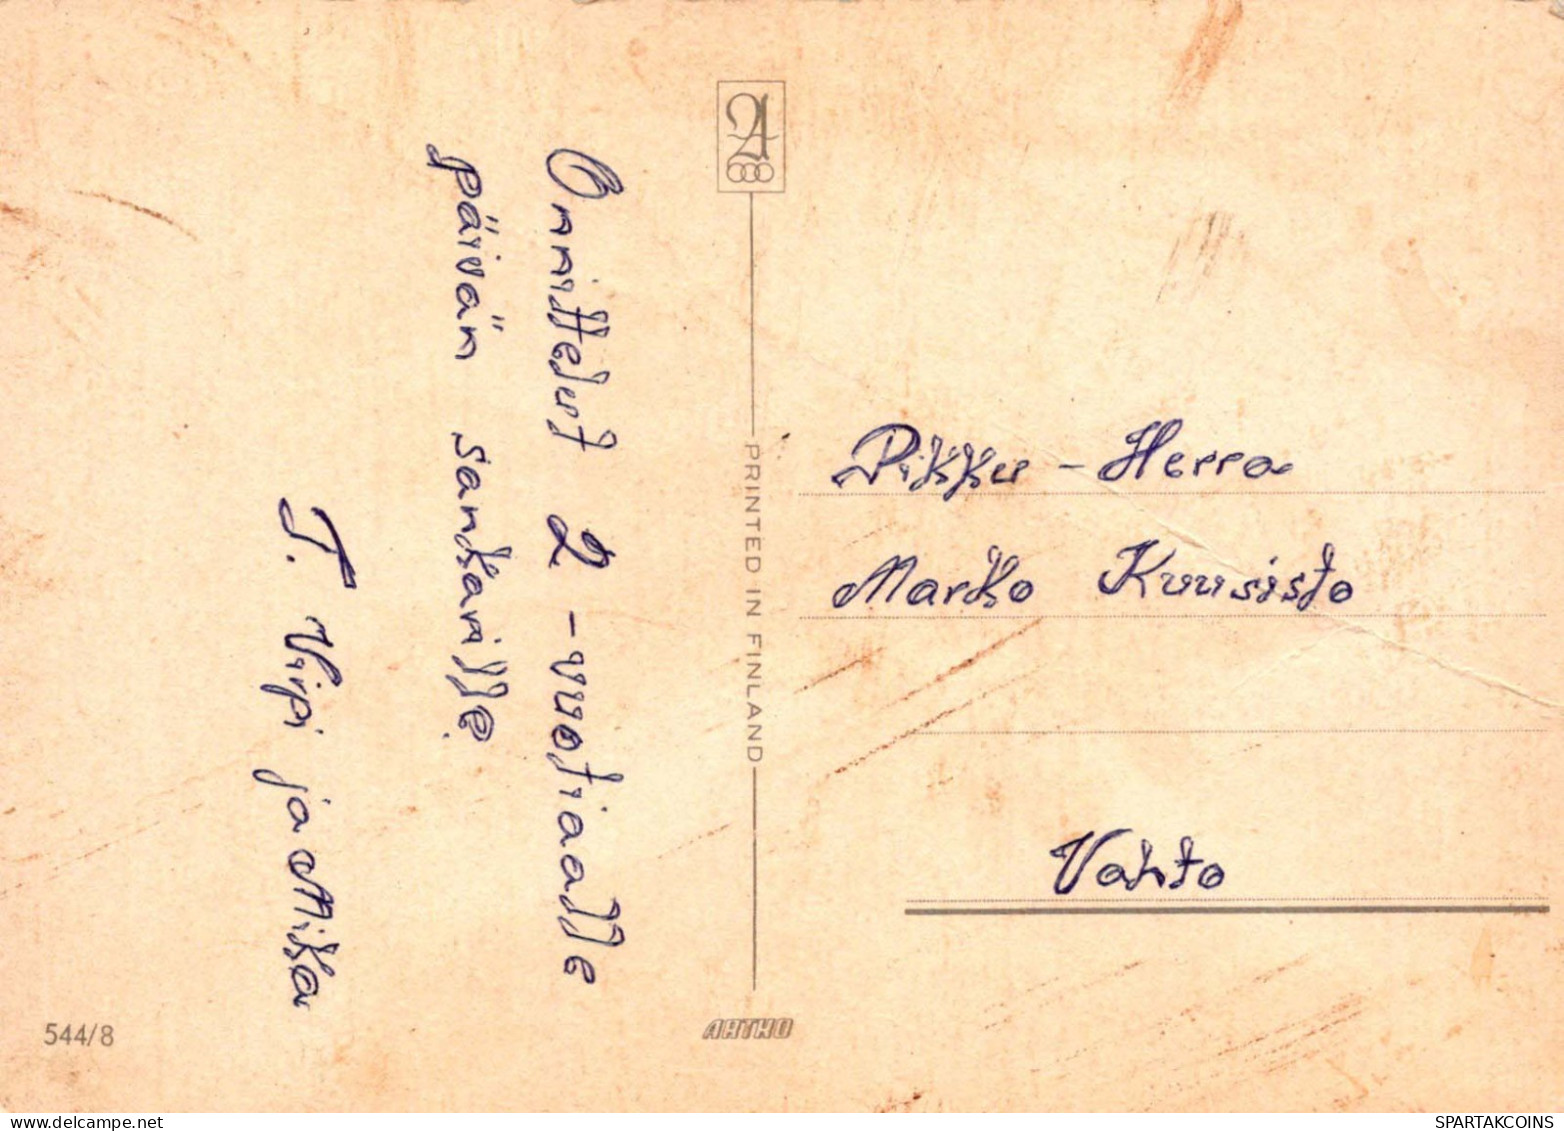 Onnittelut 2-vuotiaalle
päivän sankarille.
T. Virpi ja Mika
544/8
A
PRINTED IN FINLAND
ARTKO
Pikku-Herra
Marko Kuusisto
Vahto
SPARTAKCOINS